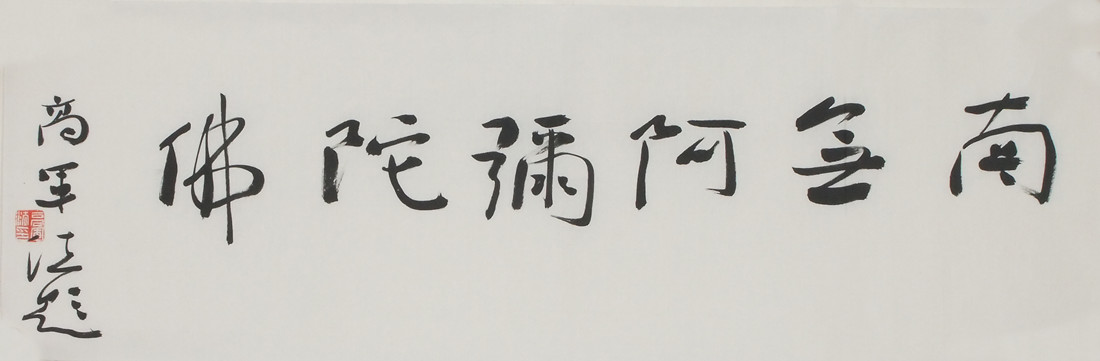 南無阿彌陀佛
高軍法題